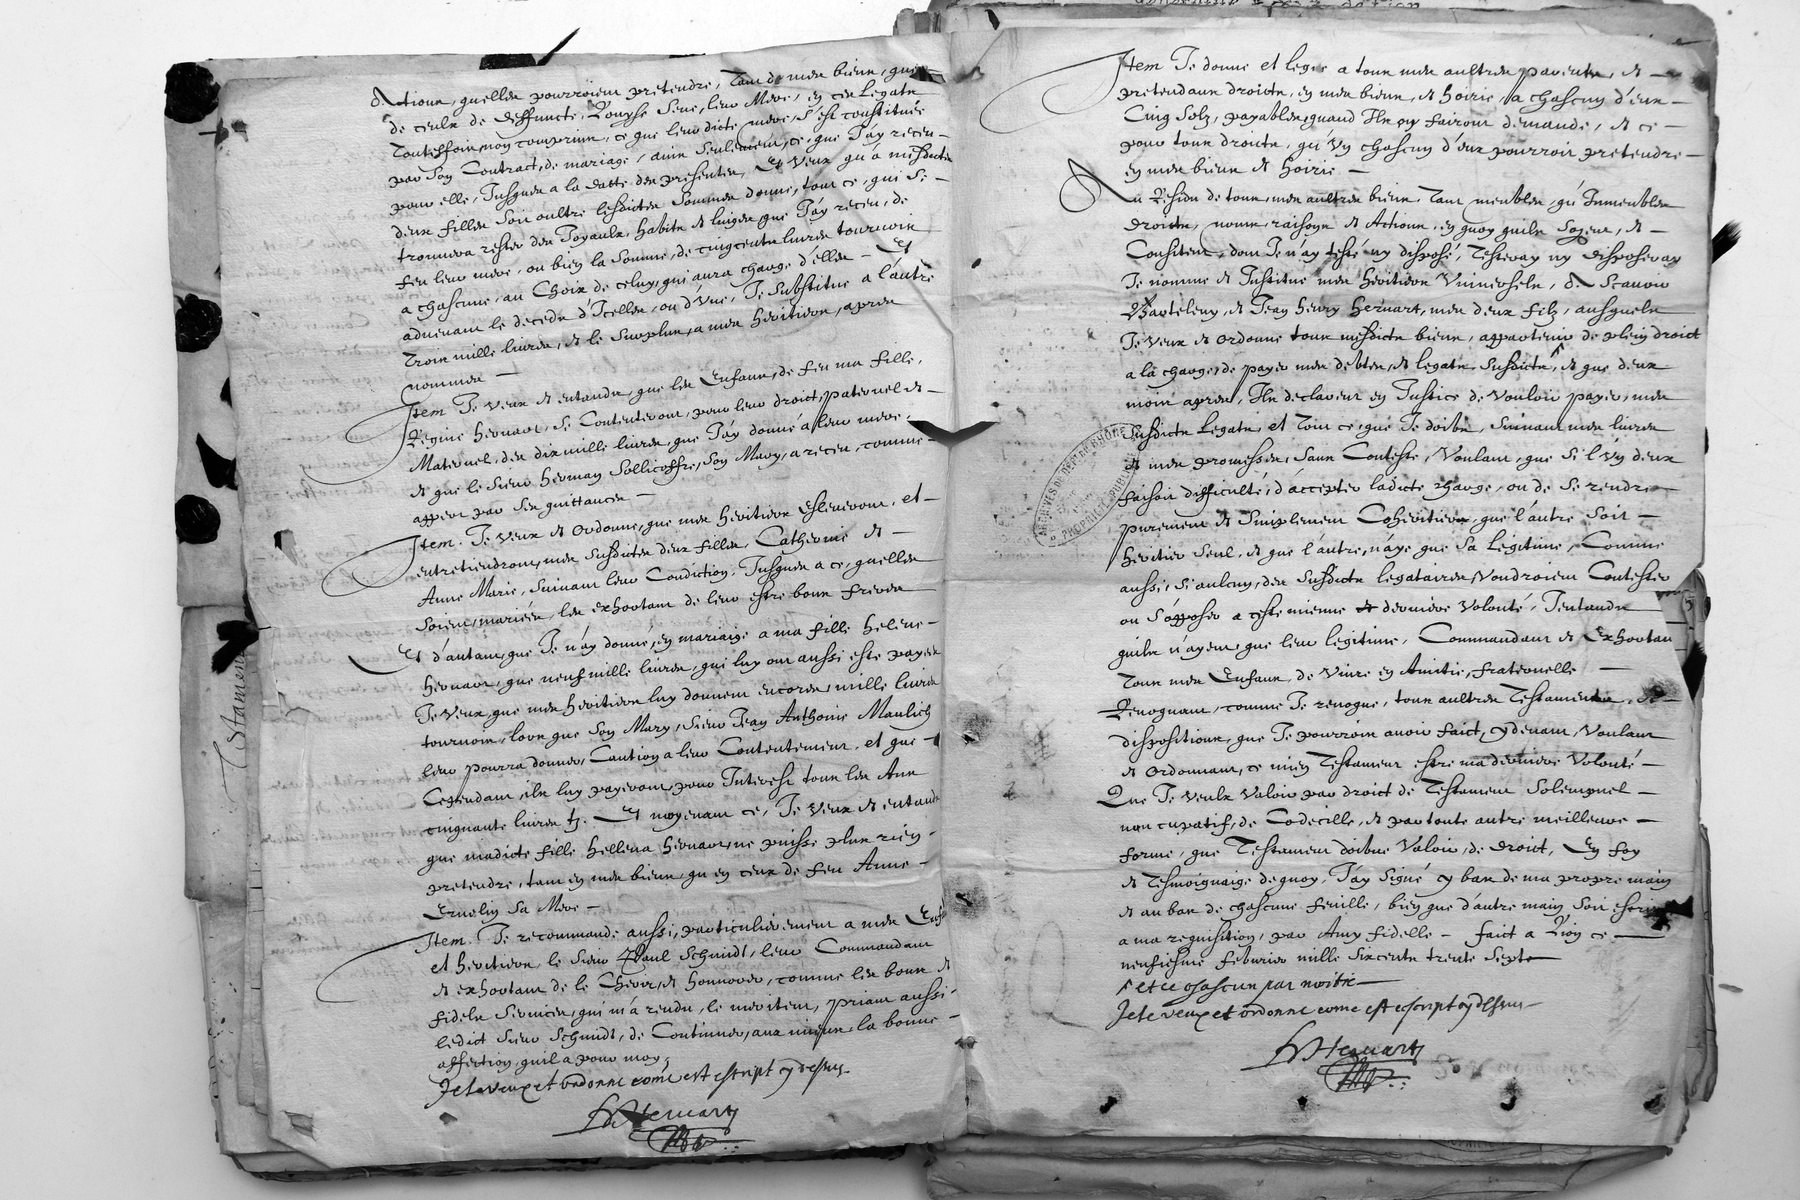 Actions, quelles pourroient pretendre, tant de mes biens, que
de ceulx de deffuncte, Louyse Seve, leur Mere, en ces Legats
touteffois, non comprins, ce que leur dicte mere, s'est constituée
par son Contract, de mariage, ains seulement, ce, que J'ay receu
pour elle, Jusques a la datte des presentes, Et Veux qu'a mesdictes
deux filles soit oultre lesdictes sommes donné, tout ce, qui se
trouvera rester des Joyaulx, habits et linges, que J'ay receu, de
feu leur mere, ou bien la somme, de cinq cents livres tournois
a chascune, au Choix de celuy, qui aura charge d'elles Et
advenant le decedz d'Icelles, ou d'Une, Je Substitue a l'autre
trois mille livres, et le surplus, a mes heritiers, apres
nommes
Item Je veux et entends, que les Enfans, de feu ma fille,
Regine hervart, se Contenteront, pour leur droict, paternel et
Maternel, des dix mille livres, que J'ay donné a leur mere,
et que le Sieur Herman Sollicoffre, son Mary, a receu, comme
appert par ses quittances
Item. Je veux et Ordonne, que mes heritiers Esleveront, et
entretiendront, mes susdictes deux filles, Catherine et
Anne Marie, suivant leur Condiction, Jusques a ce, quelles
soient, mariées, les exhortant de leur estre bons freres
Et d'autant, que Je n'ay donné, en mariaige a ma fille Helene
Hervart, que neuf mille livres, qui luy ont aussi esté payés
Je Veux, que mes heritiers luy donnent encores, mille livres
tournois, lors que son Mary, Sieur Jean Anthoine Maulich
leur pourra donner, Caution a leur Contentement, et que
Cependant, ils luy payeront, pour Interest tous les Ans
cinquante livres tz. Et moyenant ce, Je Veux et entends
que madicte fille Hellena Hervart, ne puisse plus rien
pretendre, tant en mes biens, qu'en ceux de feu Anne
Ernelin sa Mere
Item. Je recommande aussi, particulierement a mes
et heritiers, le Sieur Paul Schmidt, leur Commandant
et exhortant de le Cherir, et honnorer, comme les bons et
fideles services, qui m'a rendu, le meritent, priant aussi
ledict Sieur Schmidt, de Continuer, aux miens, la bonne
affection, quil a pour moy,
Je le veux et ordonne come est escript cy dessus
Hervart
Item Je donne et legue a tous mes aultres parents, et
pretendans droicts, en mes biens, et hoirie, a chascun d'eux
Cinq Solz, payables, quand Ils en fairont demande, et ce
pour tous droicts, qu'un chascun d'eux pourroit pretendre
en mes biens et hoirie
Au Residu de tous, mes aultres biens, tant meubles qu'Immeubles
droicts, noms, raisons et Actions, en quoy quils soyent, et
Consistent, dont Je n'ay testé ny disposé, testeray ny disposeray
Je nomme et Institue mes heritiers Universels, et Scavoir
Barteleny, et Jean Henry Hervart, mes deux filz, ausquels
Je veux et ordonne tous mesdicts biens, appartenir de plein droict
a la charge, de payer mes debtes, et legats susdicts, et que deux
mois apres, Ils declarent en Justice de vouloir payer, mes
susdicts Legats, et tout ce, que Je doibts, suivant mes livres
et mes promesses, sans Conteste, Voulant, que si l'un deux
faisoit difficulté, d'accepter ladicte charge, ou de se rendre
purement et simplement Coheritier, que l'autre soit
heritier seul, et que l'autre, n'aye que sa Legitime, Comme
aussi, si aulcun, des susdicts legataires, Voudroient Contester
ou s'opposer a ceste mienne et derniere Volonté, J'entends
quils n'ayent, que leur legitime, Commandant et Exhortant
tous mes Enfans, de Vivre en Amitié, fraternelle
Revoquant, comme Je revoque, tous aultres Testaments, et
dispositions, que Je pourrois avoir faict, cy devant, Voulant
et Ordonnant, ce mien Testament estre ma derniere Volonté
Que Je Veulx Valoir par droict de Testament Solempnel
noncupatif, de Codicille, et par toute autre meilleure
forme, que Testament doibve Valoir, de droict, En foy
et Tesmoignaige dequoy, J'ay Signé cy bas de ma propre main
et au bas de chascune feuille, bien que d'autre main soit escript
a ma requisition, par Amy fidelle faict a Lion ce
neufiesme febvrier mille Six cents trente Septe
et ce chascun par moitié
Je le veux et ordonne come est escript cy dessus
Hervart
ARCHIVES DU DEPT DU RHÔNE
PROPRIETE PUBLIQUE